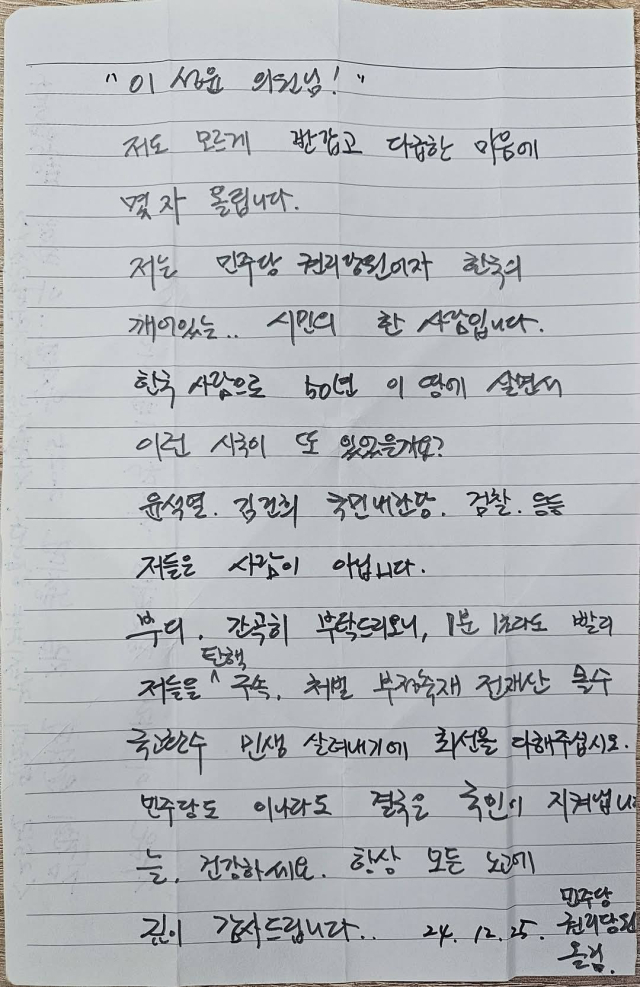 "이성윤 의원님!"
저도 모르게 반갑고 다급한 마음에
몇 자 올립니다.
저는 민주당 권리당원이자 한국의
깨어있는.. 시민의 한 사람입니다.
한국 사람으로 50년 이 땅에 살면서
이런 시국이 또 있었을까요?
윤석열. 김건희 국민내란당. 검찰. 등등
저들은 사람이 아닙니다.
부디, 간곡히 부탁드리오니, 1분 1초라도 빨리
저들을 탄핵 구속, 처벌 부정축재 전재산 몰수
국고환수 민생 살려내기에 최선을 다해주십시오.
민주당도 이나라도 결국은 국민이 지켜냅니다
늘. 건강하세요. 항상 모든 노고에
깊이 감사드립니다.. 24. 12. 25.
민주당
권리당원
올림.